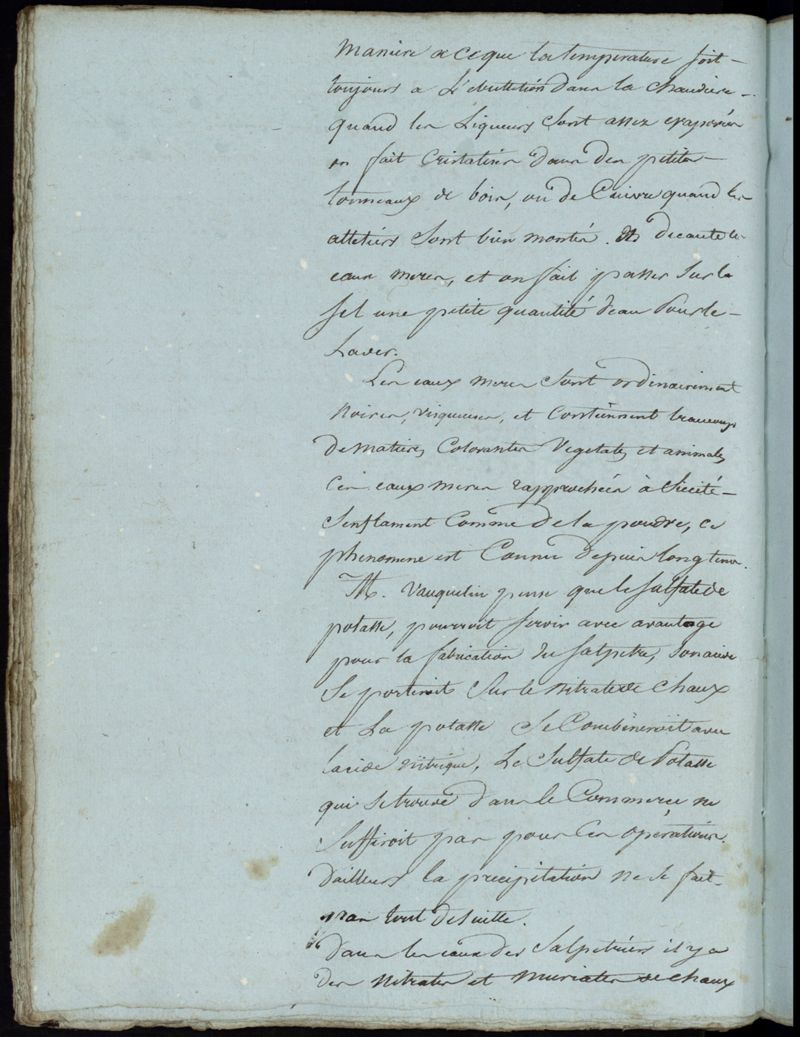 maniere a ce que la temperature soit
toujours a L'ebullition dans la chaudiere
quand les Liqueurs sont assez evaporées
on fait Cristaliser dans des petits
tonneaux de bois, ou de Cuivre quand les
atteliers sont bien montés. decante les
eaux meres, et on fait passer sur le
sel une petite quantité deau Pour le
Laver.
Les eaux meres sont ordinairement
noires, visqueuses, et contiennent beaucoup
de matieres Colorantes Vegetales et animales
Ces eaux meres rapprochées à Siccité
senflament Comme de la poudre, ce
phenomene est Connu depuis longtems.
M. Vauquelin pense que le Sulfate de
potasse, pourroit servir avec avantage
pour la fabrication du salpetre, son acide
se porteroit sur le nitrate de chaux
et La potasse se Combineroit avec
lacide nitrique, Le Sulfate de Potasse
qui se trouve dans le Commerce ne
suffiroit pas pour Ces opérations.
d'ailleurs la precipitation ne se fait
pas tout de suitte.
dans les eaux des Salpetriers il y a
des nitrates et muriates de chaux